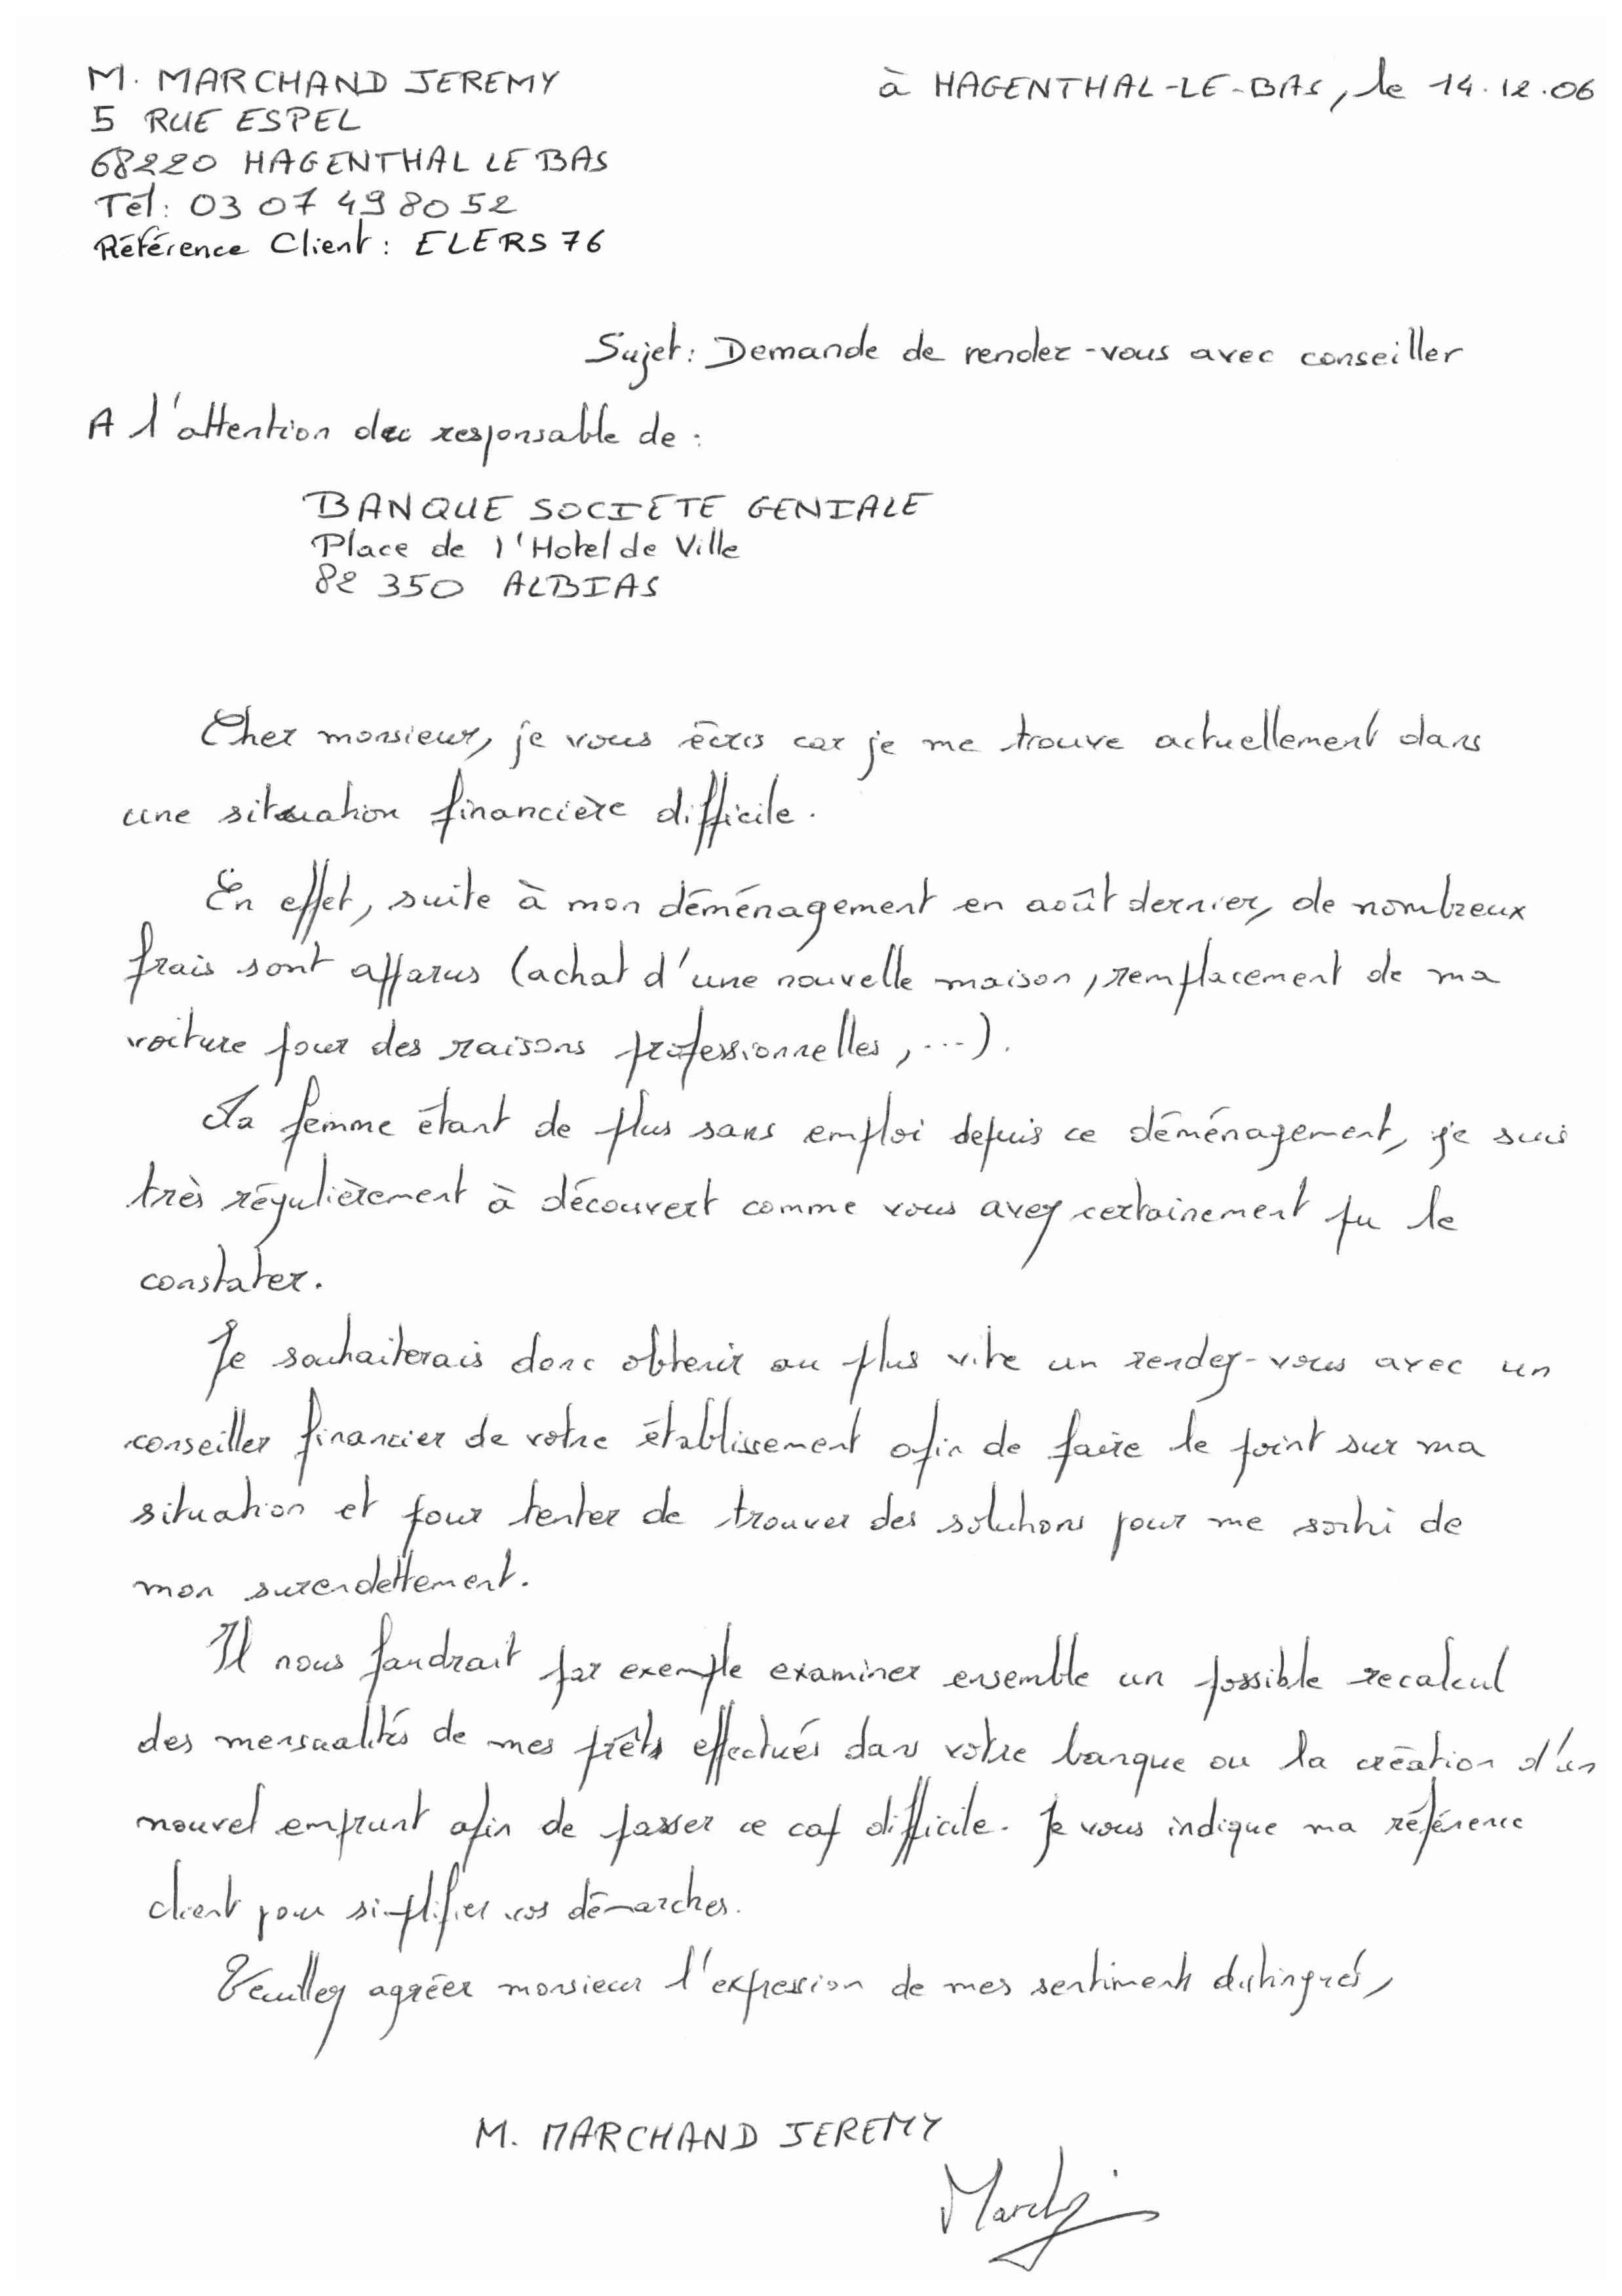 M. MARCHAND JEREMY
à HAGENTHAL-LE-BAS, le 14.12.06
5 RUE ESPEL
68220 HAGENTHAL LE BAS
Tél: 03 07 49 80 52
Référence Client: ELERS 76
Sujet: Demande de rendez-vous avec conseiller
A l'attention du responsable de :
BANQUE SOCIETE GENIALE
Place de l'Hotel de Ville
82 350 ALBIAS
Cher monsieur, je vous écris car je me trouve actuellement dans
une situation financière difficile.
En effet, suite à mon déménagement en août dernier, de nombreux
frais sont apparus (achat d'une nouvelle maison, remplacement de ma
voiture pour des raisons professionnelles, ...).
Ma femme étant de plus sans emploi depuis ce déménagement, je suis
très régulièrement à découvert comme vous avez certainement pu le
constater.
Je souhaiterais donc obtenir au plus vite un rendez-vous avec un
conseiller financier de votre établissement afin de faire le point sur ma
situation et pour tenter de trouver des solutions pour me sorti de
mon surendettement.
Il nous faudrait par exemple examiner ensemble un possible recalcul
des mensualités de mes prêts effectués dans votre banque ou la création d'un
nouvel emprunt afin de passer ce cap difficile. Je vous indique ma référence
client pour simplifier vos démarches.
Veuillez agréer monsieur l'expression de mes sentiments distingués,
M. MARCHAND JEREMY